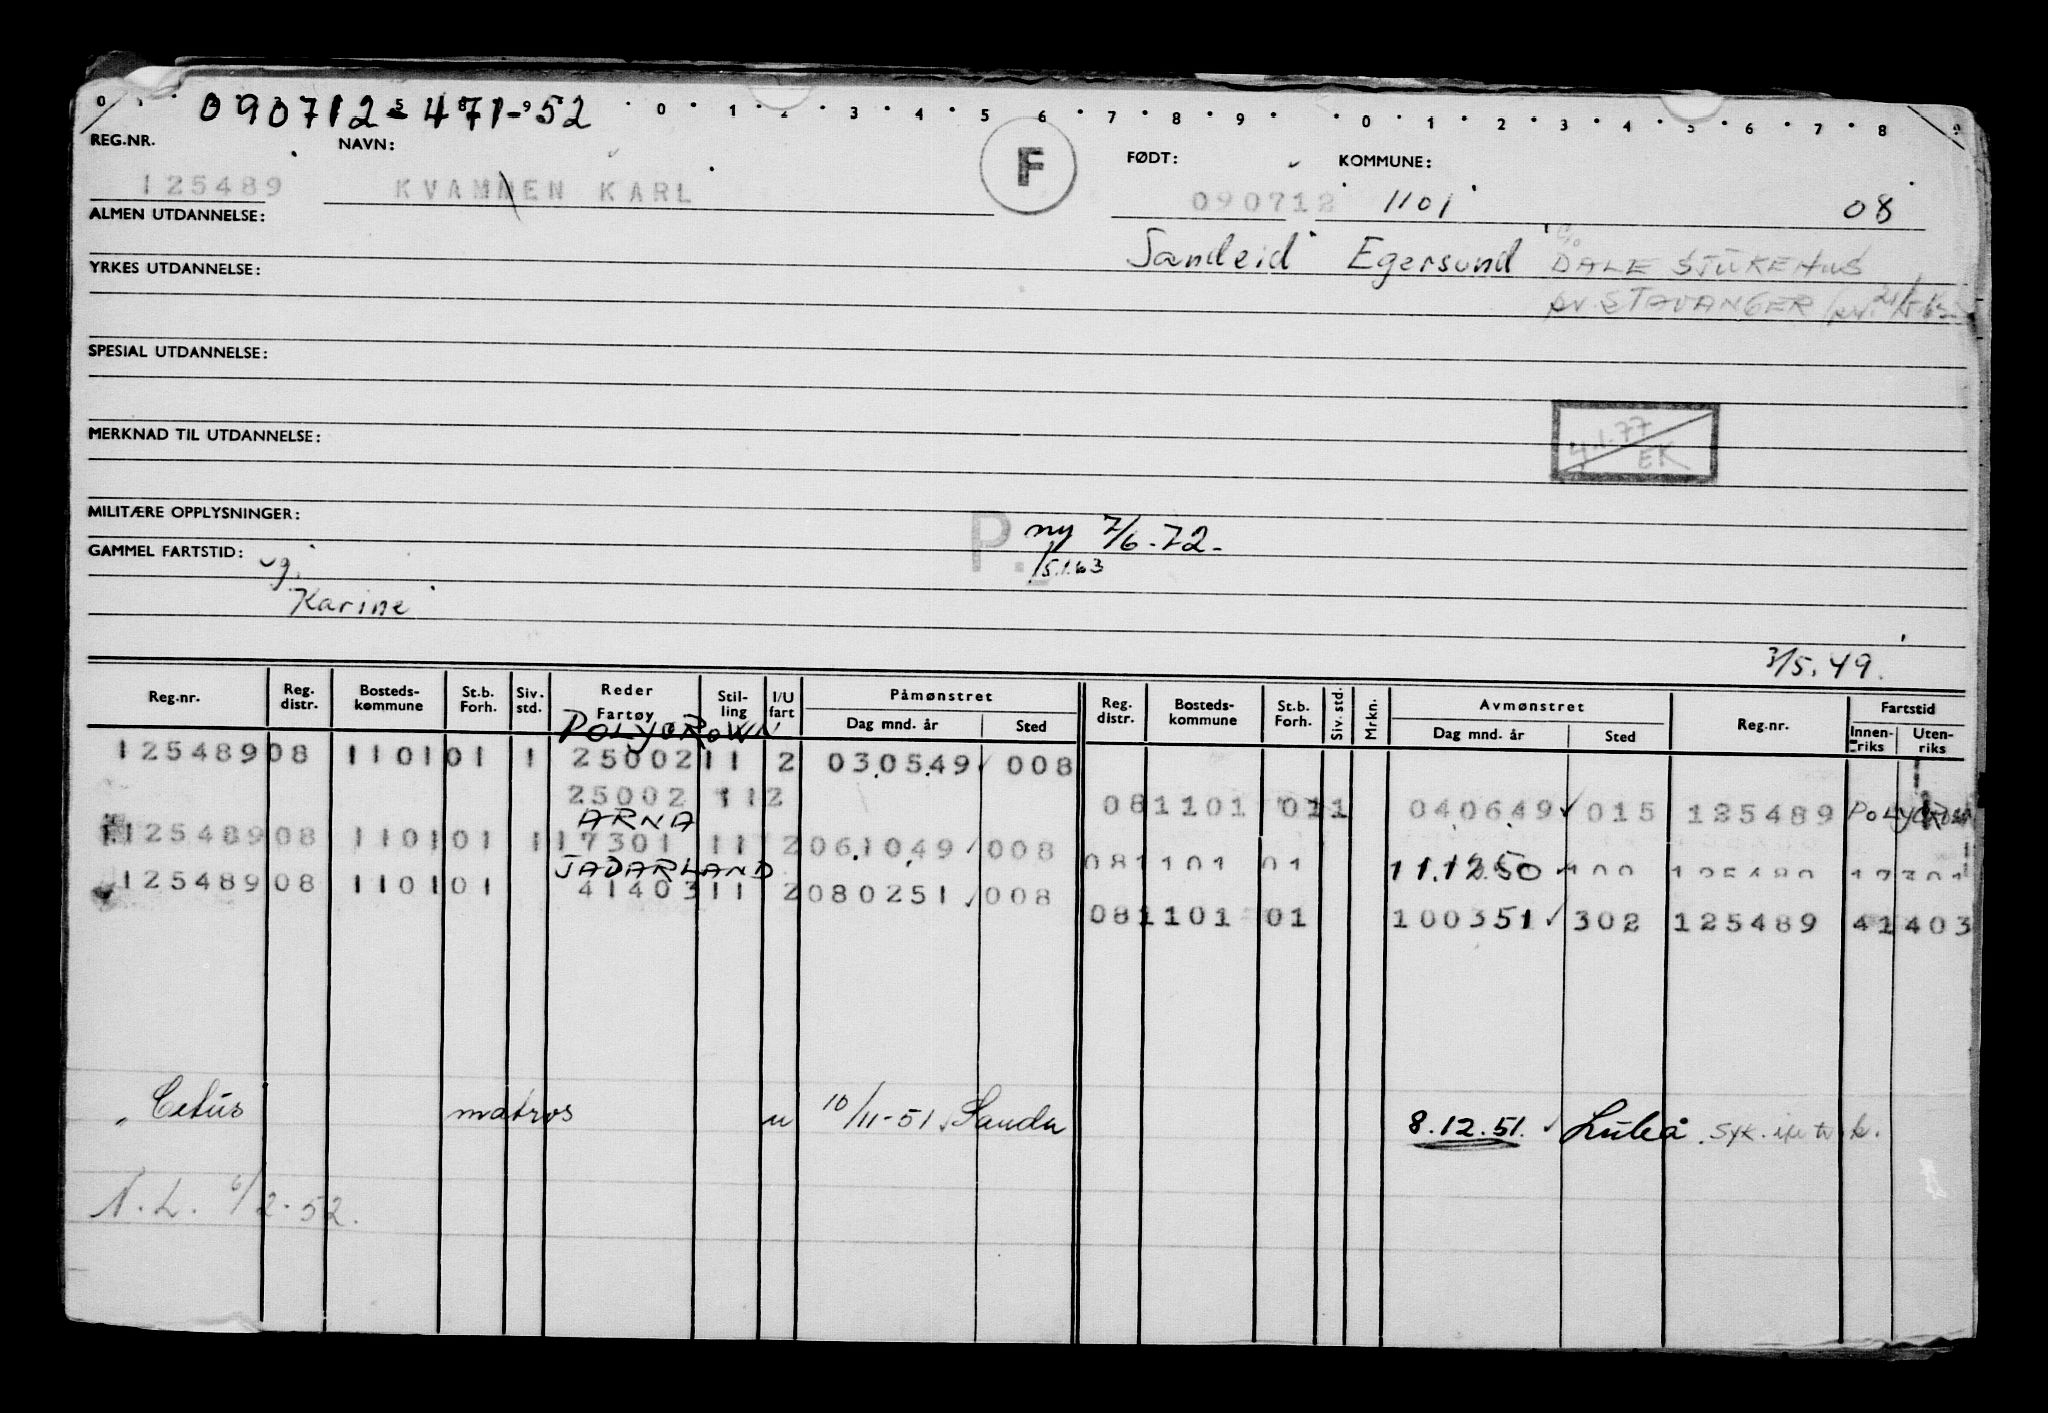 090712-471-52
0 1 2 3 4 5 6 7 8 9 0 1 2 3 4 5 6 7 8 9
REG.NR. NAVN: F FØDT: KOMMUNE:
125489 KVAMMEN KARL 090712 1101 08
ALMEN UTDANNELSE:
Sandeid Egersund c/o DALE SJUKEHUS
YRKES UTDANNELSE:
PV STAVANGER
SPESIAL UTDANNELSE:
4.1.77
EK
MERKNAD TIL UTDANNELSE:
MILITÆRE OPPLYSNINGER:
P. ny 7/6-72-
GAMMEL FARTSTID:
ug. 15.1.63
Karine
3/5.49.
Reg.nr. Reg. distr. Bosteds-kommune St.b. Forh. Siv. std. Reder Fartøy Stil-ling I/U fart Påmønstret Dag mnd. år Sted Reg. distr. Bosteds-kommune St.b. Forh. Siv. std. Mrkn. Avmønstret Dag mnd. år Sted Reg.nr. Fartstid Innen-riks Uten-riks
POLYCROWN
125489 08 1101 01 1 25002 11 2 030549 008
25002 11 2 08 1101 01 1 040649 015 125489 POLYCROWN
ARNA
125489 08 1101 01 1 17301 11 2 061049 008 08 1101 01 11.12.50 100 125489 17301
JADARLAND
125489 08 1101 01 41403 11 2 080251 008
08 1101 01 100351 302 125489 41403
Cetus matros u 10/11-51 Sauda 8.12.51. Luleå. syk.
N.L. 6/2-52.